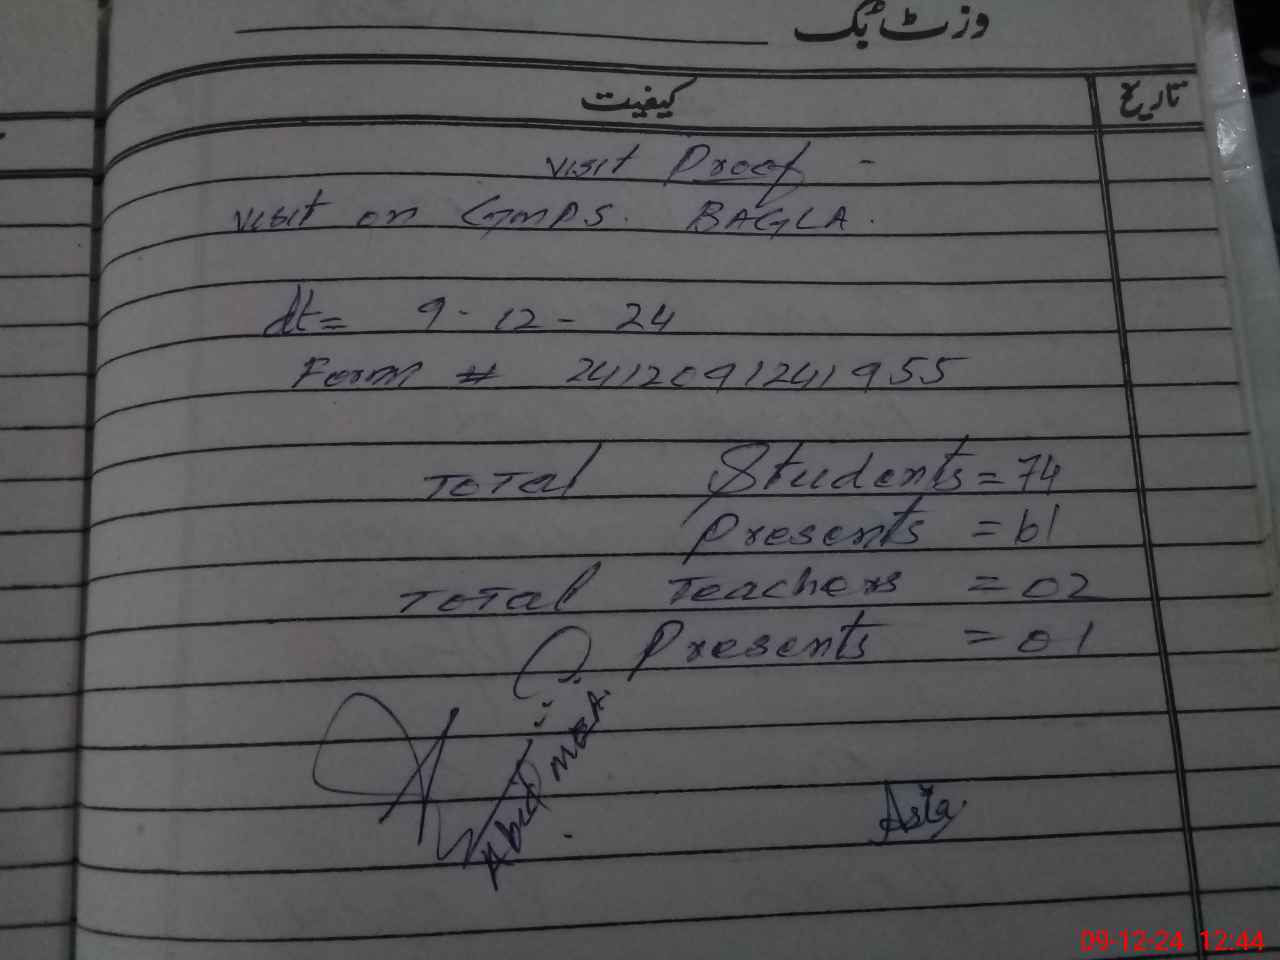 وزٹ بک
کیفیت تاریخ
visit Proof -
visit on GMPS. BAGLA.
dt= 9-12-24
Form # 2412091241955
Total Students = 74
Presents = 61
Total Teachers = 02
Presents = 01
Asia
09-12-24 12:44